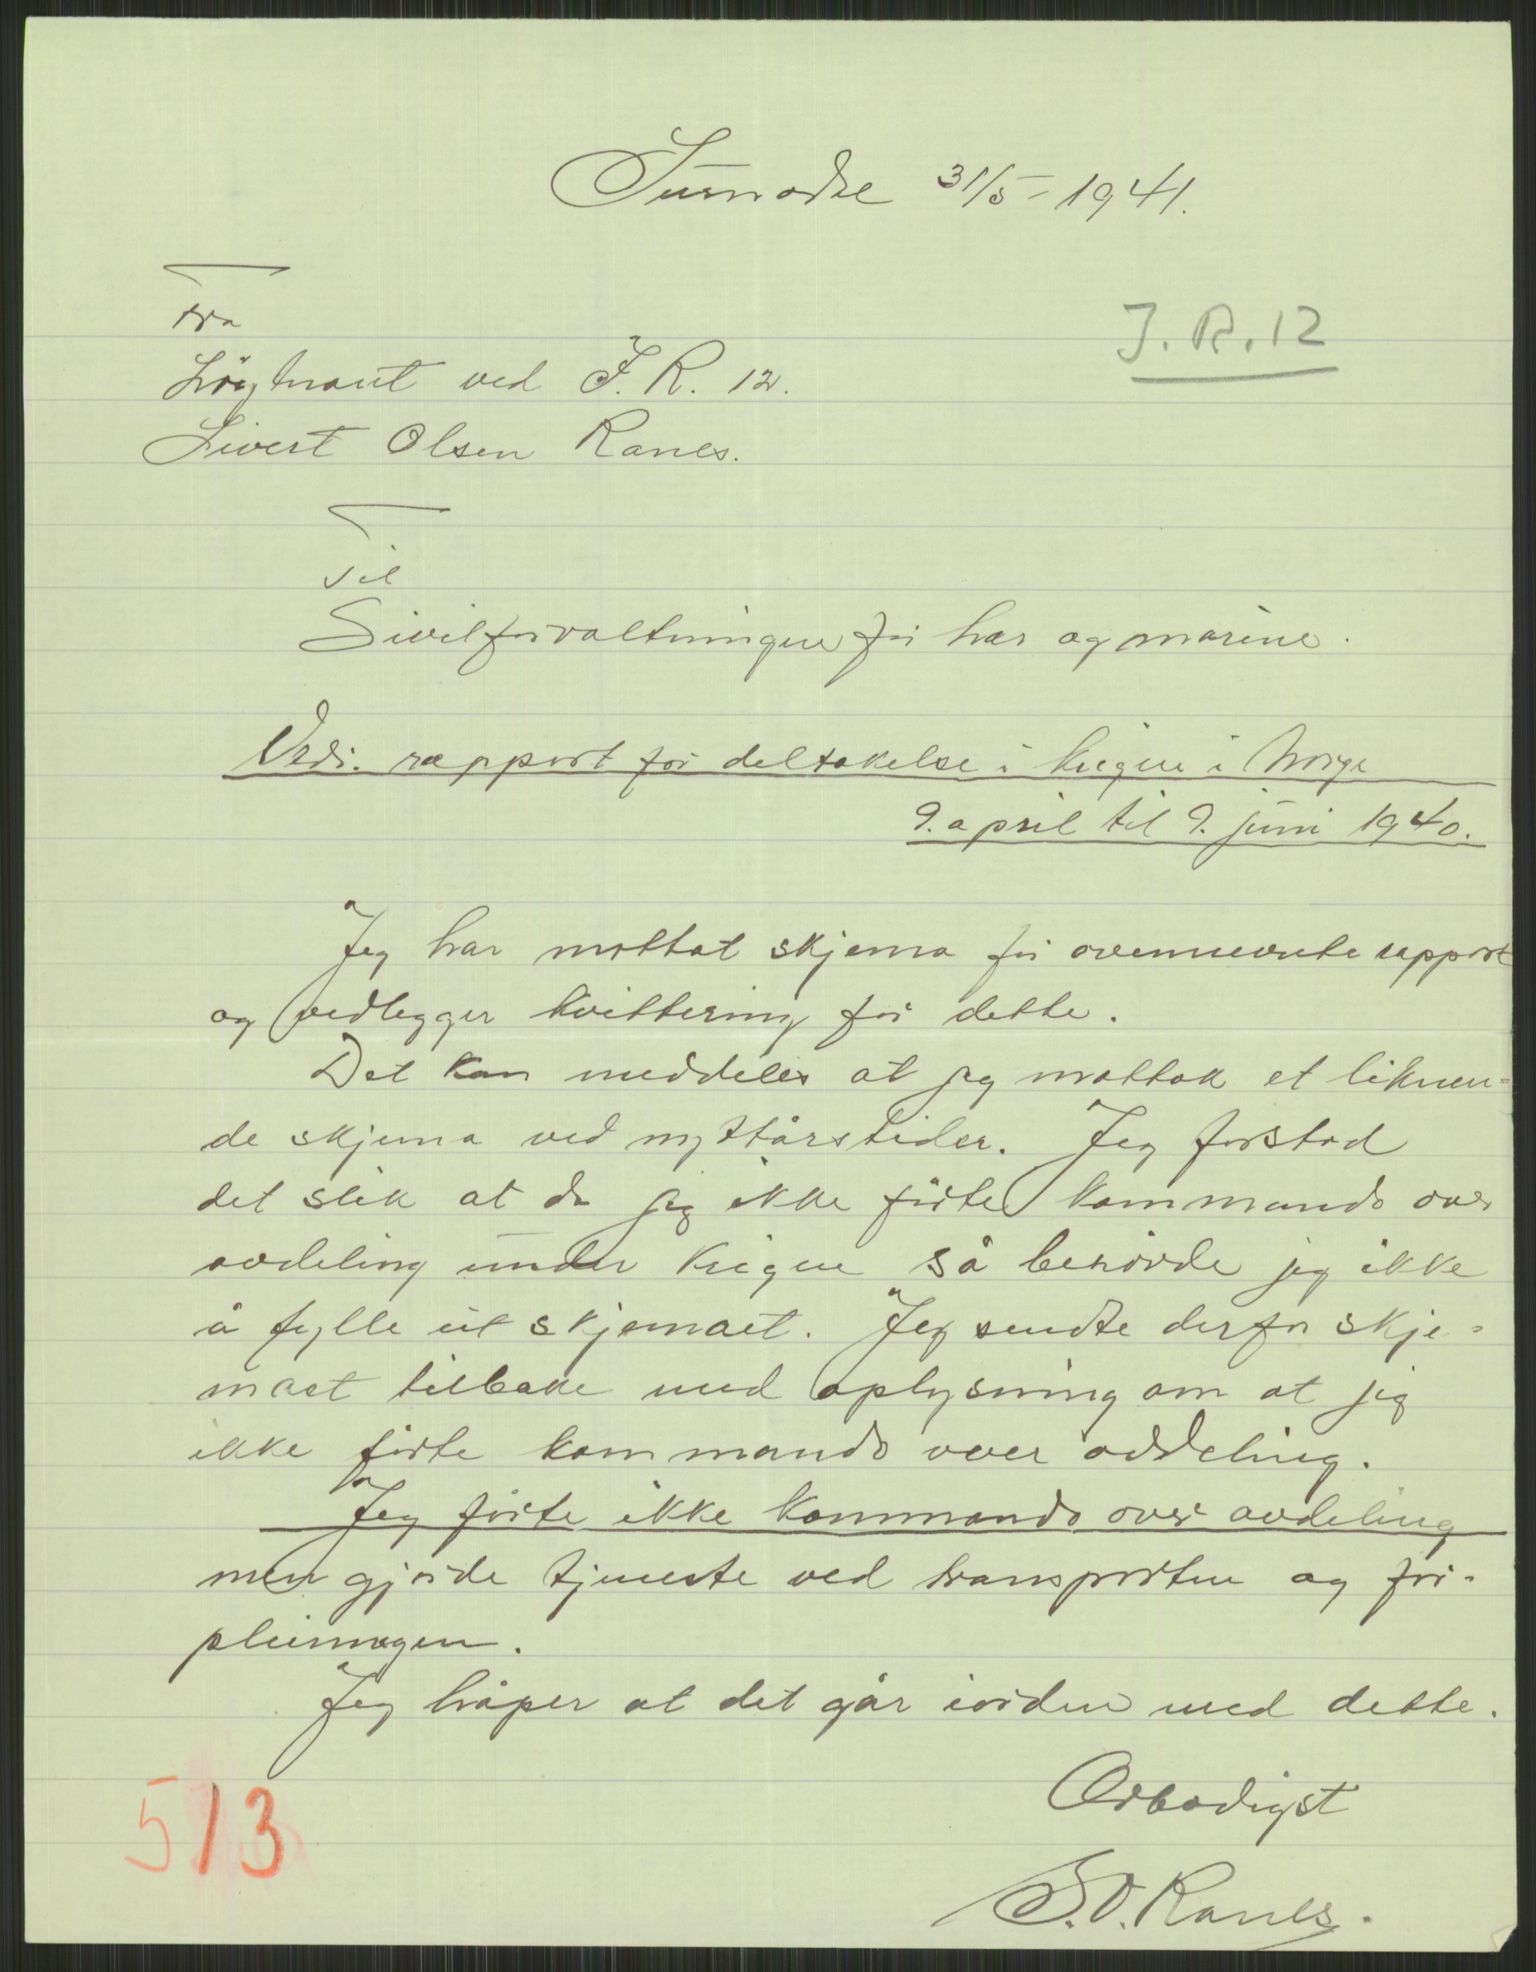 Surnadal 31/5 - 1941.
J. R. 12
Fra
Löytnant ved I. R. 12.
Sivert Olsen Ranes.
Til
Sivilforvaltningen for hær og marine.
Vedr. rapport for deltakelse i krigen i Norge
9. april til 9. juni 1940.
Jeg har mottat skjema for ovennevnte rapport
og vedlegger kvittering for dette.
Det kan meddeles at jeg mottok et liknen-
de skjema ved nyttårstider. Jeg forstod
det slik at da jeg ikke förte kommando over
avdeling under krigen så behövde jeg ikke
å fylle ut skjemaet. Jeg sendte derfor skje-
maet tilbake med oplysning om at jeg
ikke förte kommando over avdeling.
Jeg förte ikke kommando over avdeling
men gjorde tjeneste ved transporten og for-
pleiningen.
Jeg håper at det går iorden med dette.
Ærbödigst
S. O. Ranes.
513